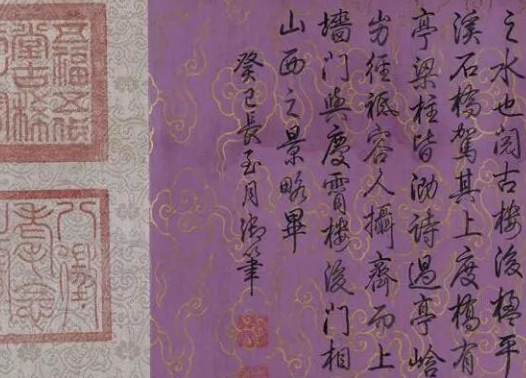 之水也閱古樓後楹平
溪石橋駕其上度橋有
亭梁柱皆泐詩過亭峆
徑祗容人攝齊而上
墻門與慶霄樓後門相
山西之景略畢
癸巳長至月御筆
五福五代
堂古稀
八徵
耄念